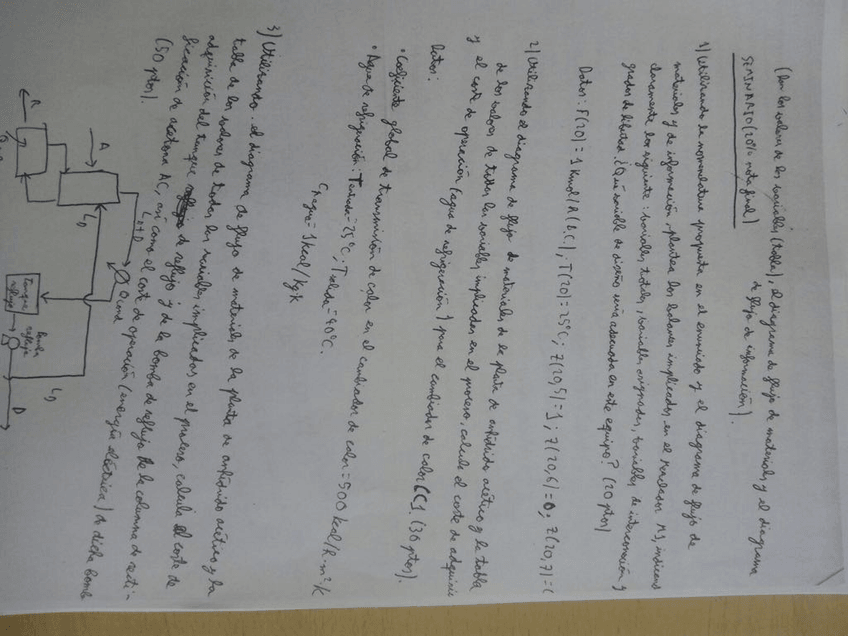 (Con los valores de las variables (tabla), el diagrama de flujo de materiales y el diagrama
de flujo de información).
SEMINARIO (20% nota final)
1) Utilizando la nomenclatura propuesta en el enunciado y el diagrama de flujo de
materiales y de información, plantea los balances implicados en el mezclador M3, indicando
claramente los siguientes: variables totales, variables asignadas, variables de interconexión y
grados de libertad. ¿Qué variable de diseño sería adecuada en este equipo? (20 ptos)
Datos: F(20) = 1 Kmol/h (b.C.); T(20) = 25ºC; Z(20,5) = 1; Z(20,6) = 0; Z(20,7) =
2) Utilizando el diagrama de flujo de materiales de la planta de anhídrido acético y la tabla
de los valores de todas las variables implicadas en el proceso, calcula el coste de
y el coste de operación (agua de refrigeración) para el cambiador de calor CC1. (30 ptos).
Datos:
• Coeficiente global de transmisión de calor en el cambiador de calor = 500 Kcal/h·m²·K
• Agua de refrigeración: Tentrada = 25ºC; Tsalida = 40ºC.
Cp agua = 1 Kcal/kg K
3) Utilizando el diagrama de flujo de materiales de la planta de anhídrido acético y la
tabla de los valores de todas las variables implicadas en el proceso, calcula el coste de
adquisición del tanque de reflujo y de la bomba de reflujo de la columna de recti-
ficación de acetona AC, así como el coste de operación (energía eléctrica) de dicha bomba
(50 ptos).
A
R
L0+D
Qcond
L0
Tanque
reflujo
Bomba
reflujo
L0
D